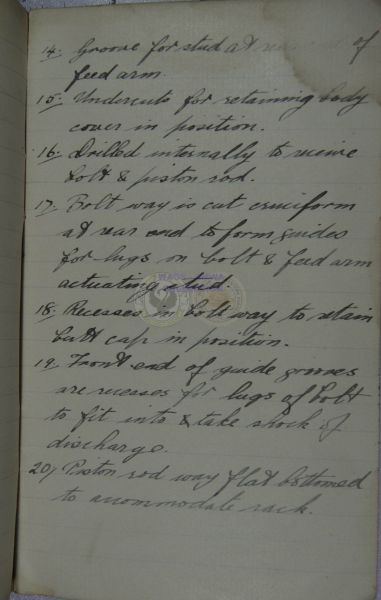 14. Groove for stud at rear end of
feed arm.
15. Undercuts for retaining body
cover in position.
16. Drilled internally to receive
bolt & piston rod.
17. Bolt way is cut cruciform
at rear end to form guides
for lugs on bolt & feed arm
actuating stud.
18. Recesses in bolt way to retain
butt cap in position.
19. Front end of guide grooves
are recesses for lugs of bolt
to fit into & take shock of
discharge.
20, Piston rod way flat bottomed
to accommodate rack.